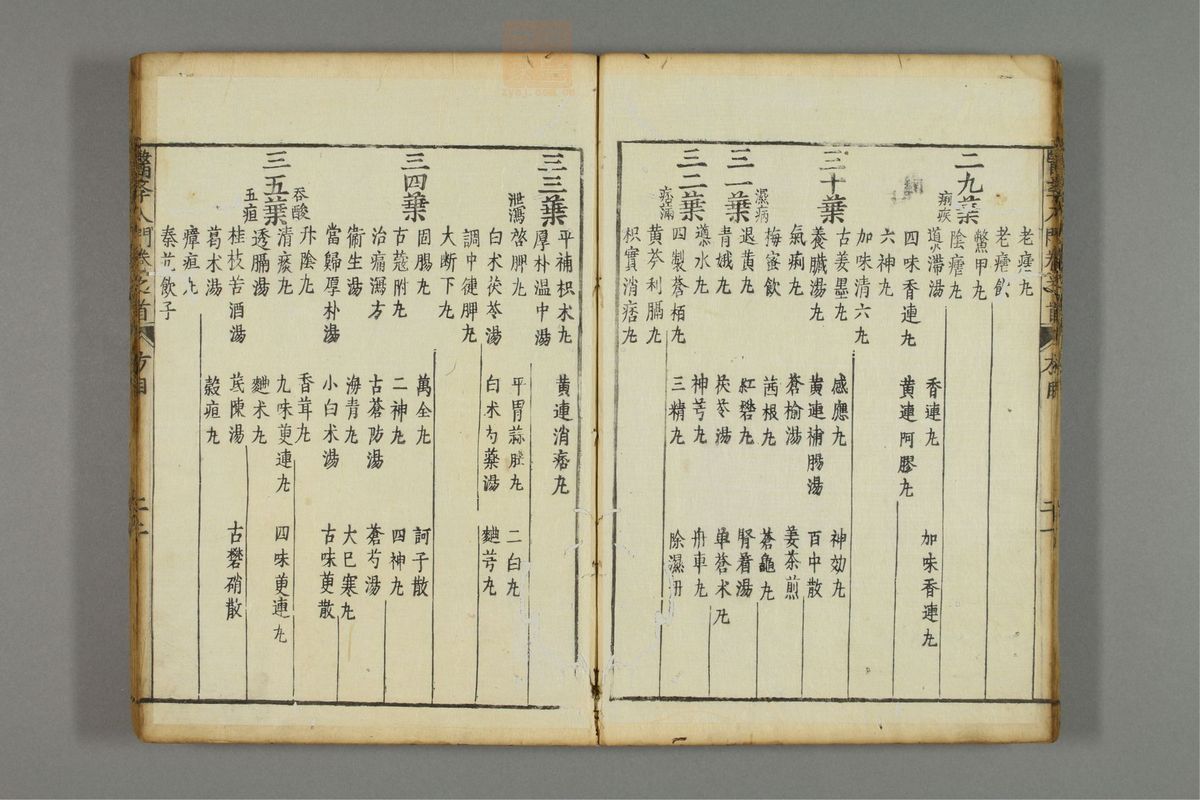 老瘧丸
老瘧飲
鱉甲丸
陰瘧丸
二九葉
痢疾
導滯湯
香連丸
加味香連丸
四味香連丸
黄連阿膠丸
六神丸
加味清六丸
三十葉
古姜墨丸
感應丸
神効丸
養臟湯丸
黄連補腸湯
百中散
氣痢丸
蒼榆湯
姜茶煎
梅蜜飲
茜根丸
蒼龜丸
三一葉
濕病
退黄丸
紅礬丸
腎着湯
青娥丸
茯苓湯
單蒼术丸
三二葉
痞滿
導水丸
神芎丸
舟車丸
四製蒼栢丸
三精丸
除濕丹
黄芩利膈丸
枳實消痞丸
三三葉
平補枳术丸
黄連消痞丸
厚朴温中湯
泄瀉
啓脾丸
平胃蒜肚丸
二白丸
白术茯苓湯
白术芍藥湯
麯芎丸
調中健脾丸
大断下丸
三四葉
固腸丸
萬全丸
訶子散
古蔻附丸
二神丸
四神丸
治痛瀉方
古蒼防湯
蒼芍湯
衛生湯
海青丸
大巳寒丸
當歸厚朴湯
小白术湯
古味萸散
三五葉
吞酸
升陰丸
香茸丸
清痰丸
九味萸連丸
四味萸連丸
透膈湯
麯术丸
五疸
桂枝苦酒湯
茋陳湯
古礬硝散
葛术湯
穀疸丸
瘴疸丸
秦艽飲子
醫學入門卷之首
方目